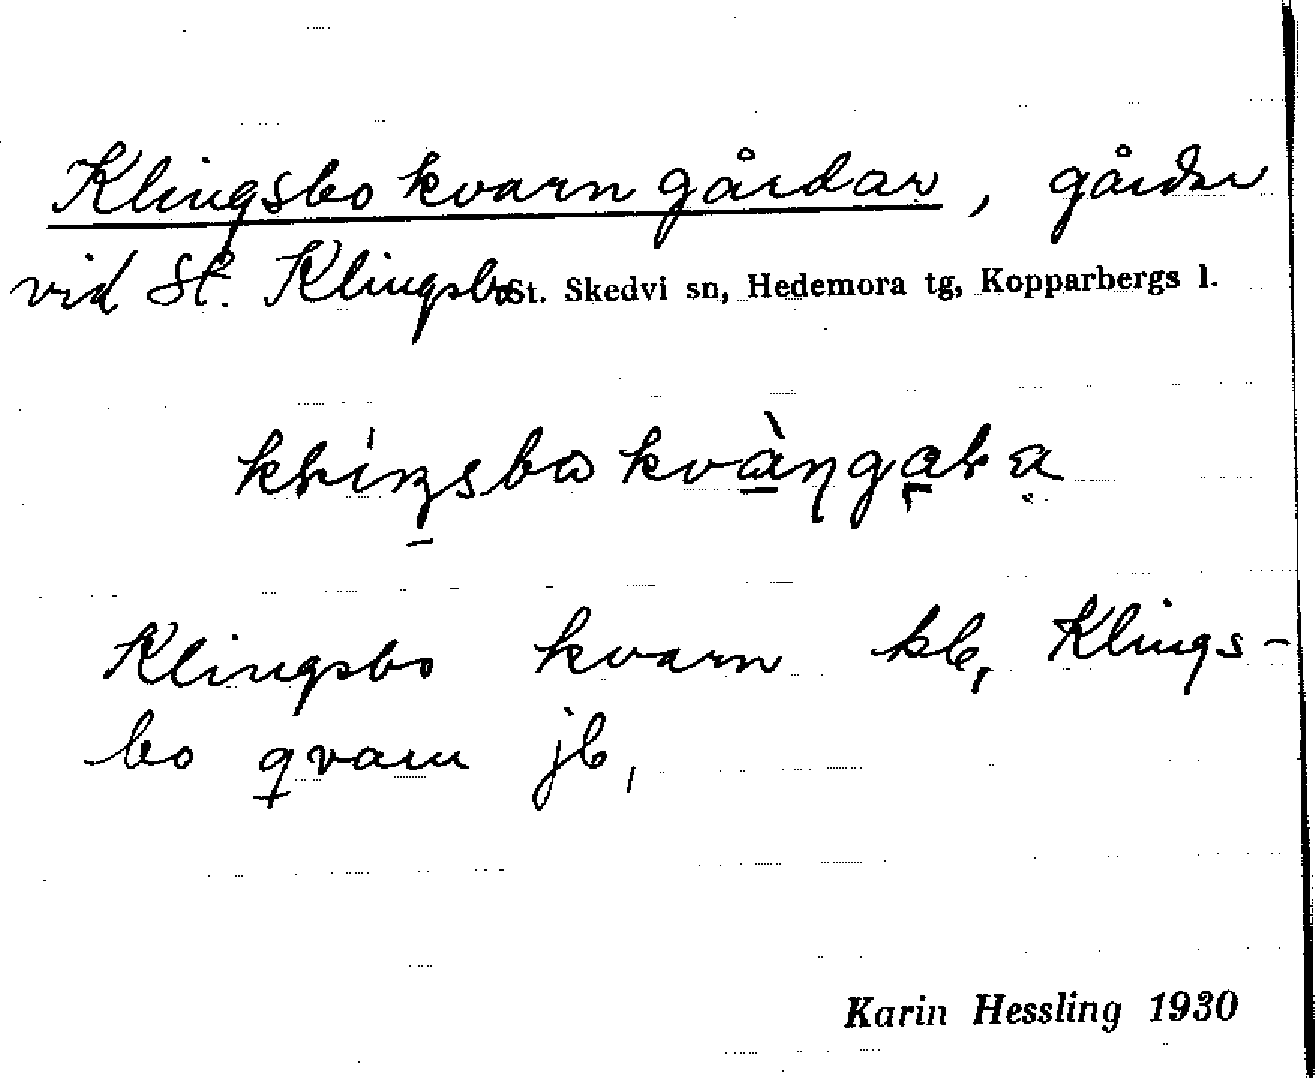 Klingsbo kvarn gårdar, gårdar
vid St. Klingsbo St. Skedvi sn, Hedemora tg, Kopparbergs l.
Klingsbo kvarn kb, Klings-
bo qvarn jb,
Karin Hessling 1930